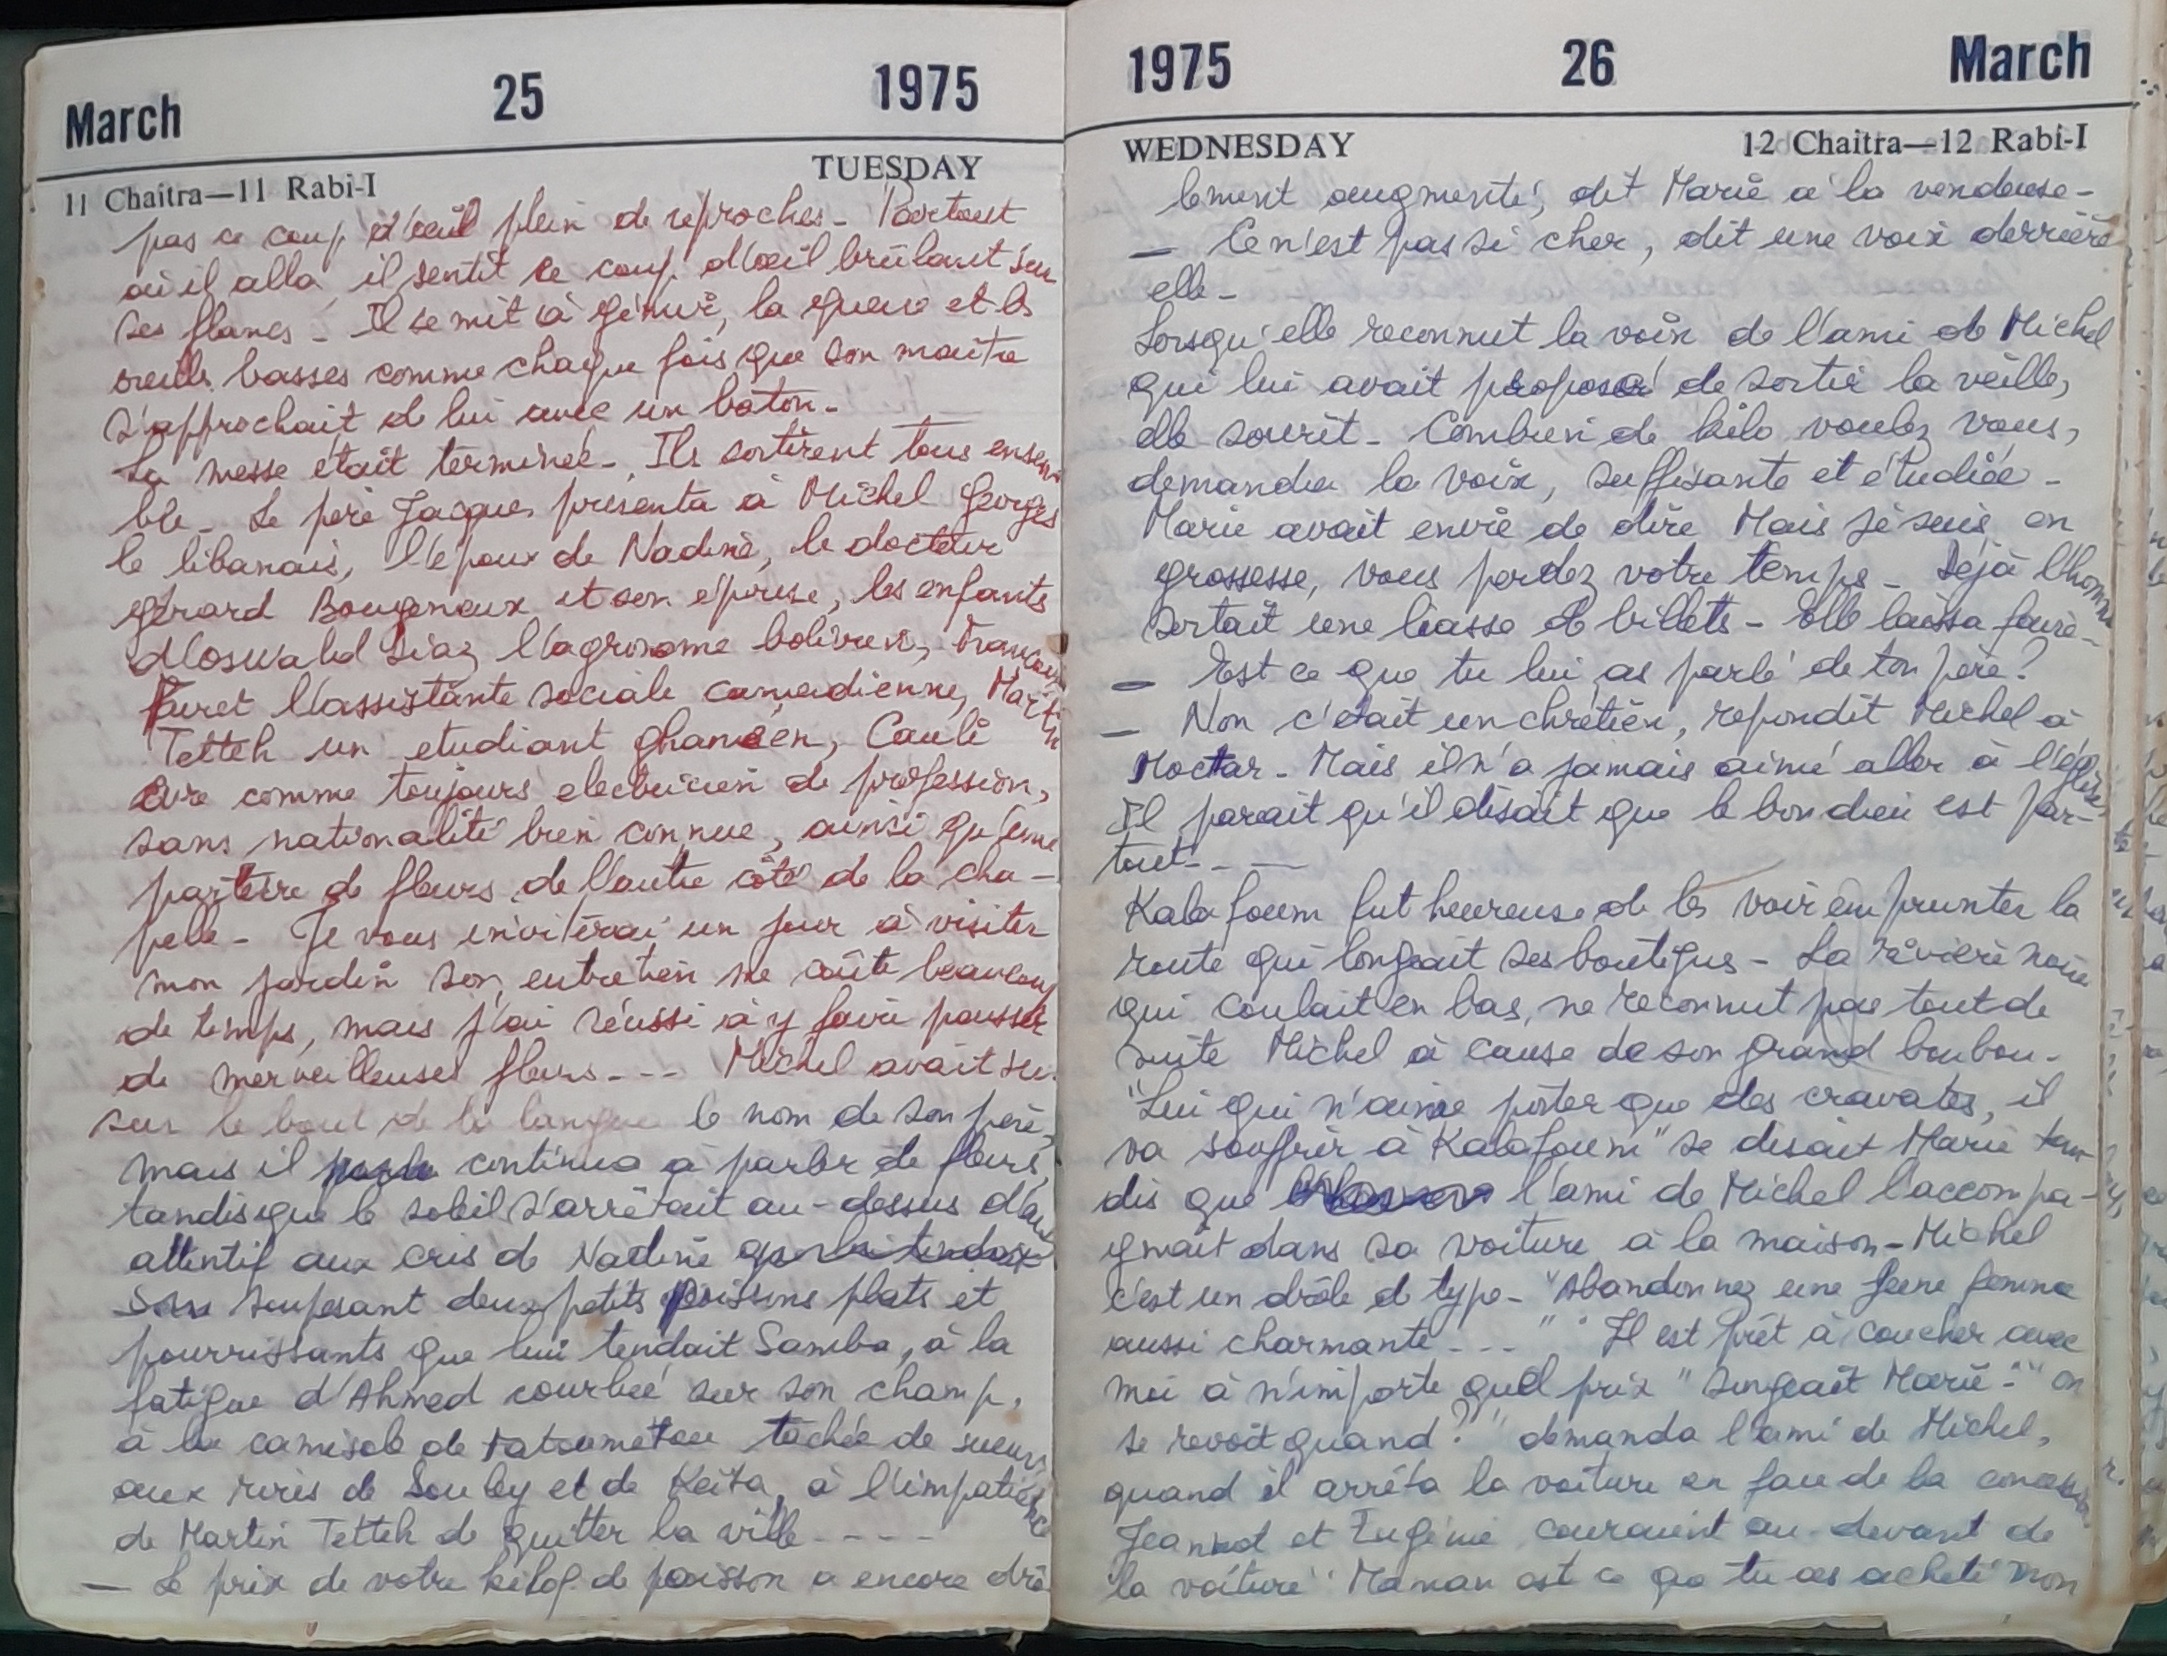 March 25 1975
11 Chaitra—11 Rabi-I TUESDAY
pas ce coup d'œil plein de reproches - Partout
où il alla, il sentit ce coup d'œil brûlant sur
ses flancs - Il se mit à gémir, la queue et les
oreilles basses comme chaque fois que son maître
s'approchait de lui avec un bâton -
La messe était terminée - Ils sortirent tous ensem
ble - Le père Jacques présenta à Michel Georges
le libanais, l'époux de Nadine, le docteur
gérard Bougeneux et son épouse, les enfants
d'Oswald Diaz l'agronome bolivien,
l'assistante sociale canadienne, Martin
Tetteh un etudiant ghanéen,
ivre comme toujours electricien de profession,
sans nationalité bien connue, ainsi qu'une
parterre de fleurs de l'autre côté de la cha -
pelle - Je vous inviterai un jour à visiter
mon jardin son entretien me coûte beaucoup
de temps, mais j'ai réussi à y faire pousser
de merveilleuses fleurs - - - Michel avait su
sur le bout de la langue le nom de son père,
mais il continua à parler de fleurs,
tandis que le soleil s'arrêtait au-dessus
attentif aux cris de Nadine
soupesant deux petits poissons plats et
pourrissants que lui tendait Samba, à la
fatigue d'Ahmed courbée sur son champ,
à la camisole de Fatoumatou tachée de sueur,
aux rires de Souley et de Keita, à l'impatience
de Martin Tetteh de quitter la ville - - - -
— Le prix de votre kilog de poisson a encore drô
1975 26 March
WEDNESDAY 12 Chaitra—12 Rabi-I
lement augmenté, dit Marie à la vendeuse -
— Ce n'est pas si cher, dit une voix derrière
elle -
Lorsqu'elle reconnut la voix de l'ami de Michel
qui lui avait proposé de sortir la veille,
elle sourit - Combien de kilo voulez vous,
demanda la voix, suffisante et étudiée -
Marie avait envie de dire Mais je suis en
grossesse, vous perdez votre temps - Déjà l'homme
sortait une liasse de billets - Elle laissa faire -
— Est ce que tu lui as parlé de ton père?
— Non c'était un chrétien, repondit Michel à
Moctar - Mais il n'a jamais aimé aller à l'église
Il parait qu'il disait que le bon dieu est par-
tout - - —
Kalafoum fut heureuse de les voir emprunter la
route qui longeait ses boutiques - La rivière noire
qui coulait en bas, ne reconnut pas tout de
suite Michel à cause de son grand boubou -
"Lui qui n'aime porter que des cravates, il
va souffrir à Kalafoum" se disait Marie tan
dis que l'ami de Michel l'accompa-
gnait dans sa voiture à la maison - Michel
c'est un drôle de type - "Abandonnez une jeune femme
aussi charmante - - - " " Il est prêt à coucher avec
moi à n'importe quel prix" songeait Marie - "on
se revoit quand?" demanda l'ami de Michel,
quand il arrêta la voiture en face de la concession
Jeannot et Eugénie couraient au-devant de
la voiture "Maman est ce que tu as acheté mon